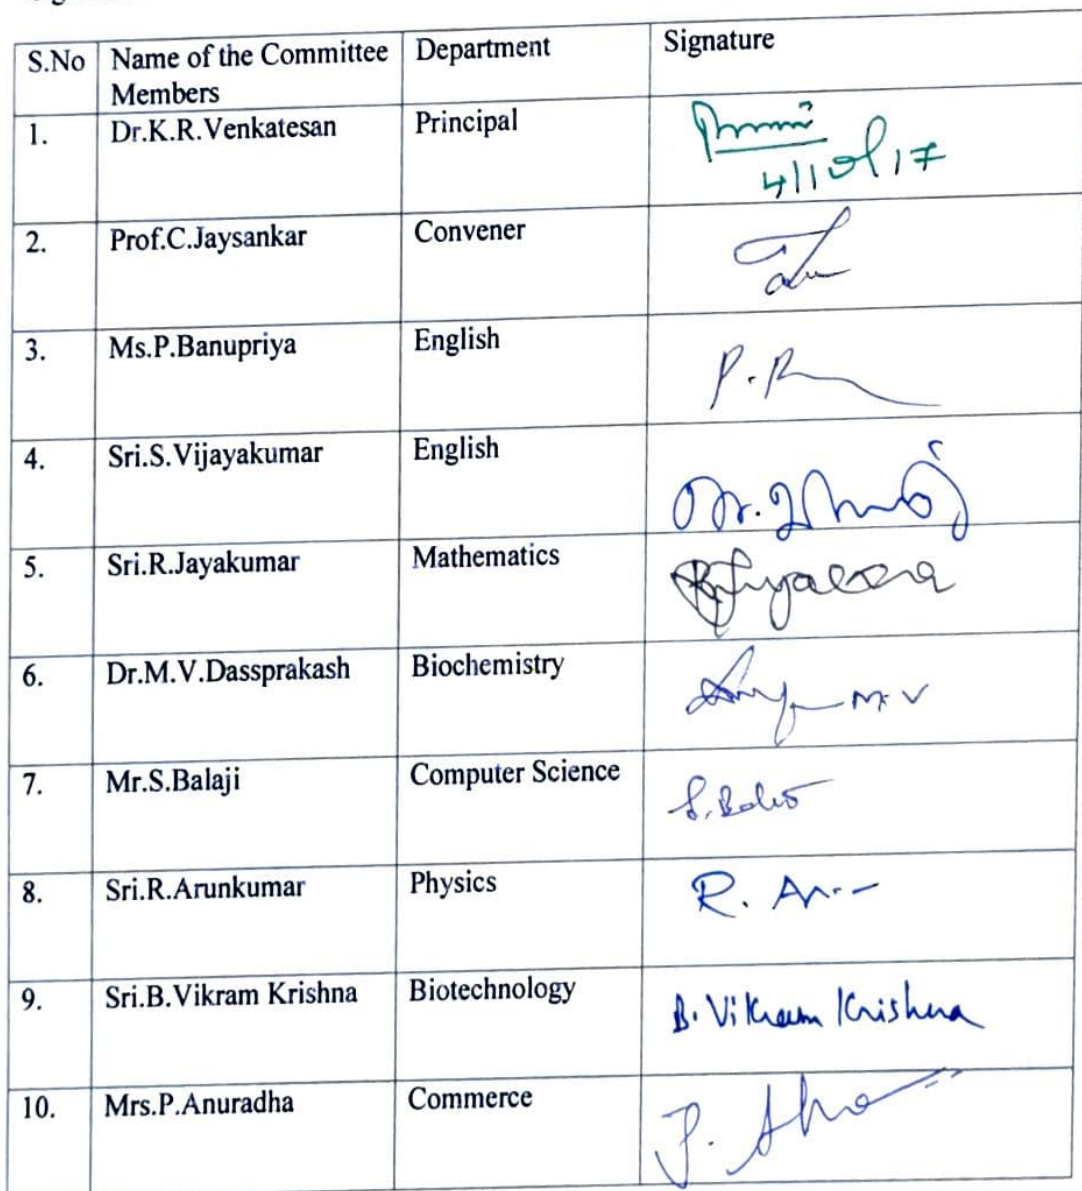 S.No Name of the Committee Members Department Signature
1. Dr.K.R.Venkatesan Principal
4/10/17
2. Prof.C.Jaysankar Convener
3. Ms.P.Banupriya English P.
4. Sri.S.Vijayakumar English
5. Sri.R.Jayakumar Mathematics
6. Dr.M.V.Dassprakash Biochemistry M.V
7. Mr.S.Balaji Computer Science
8. Sri.R.Arunkumar Physics R.
9. Sri.B.Vikram Krishna Biotechnology B. Vikram Krishna
10. Mrs.P.Anuradha Commerce P.